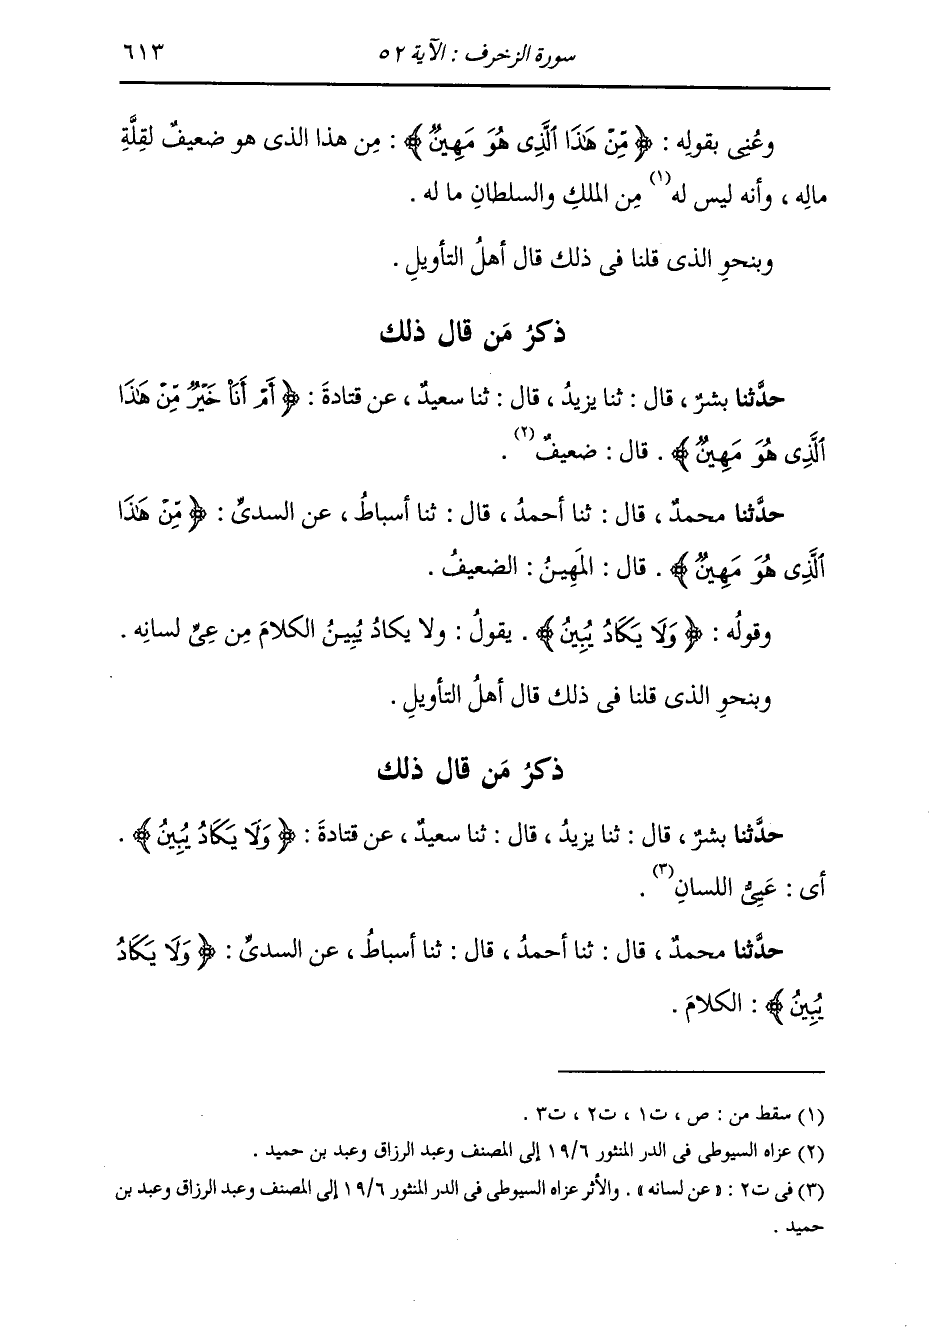 سورة الزخرف : الآية ٥٢ ٦١٣
وعُنِى بقولِه : ﴿ مِّنْ هَٰذَا ٱلَّذِى هُوَ مَهِينٌ ﴾ : مِن هذا الذى هو ضعيفٌ لقِلَّةِ
مالِه ، وأنه ليس له(١) مِن الملكِ والسلطانِ ما له .
وبنحوِ الذى قلنا فى ذلك قال أهلُ التأويلِ .
ذكرُ مَن قال ذلك
حدَّثنا بشرٌ ، قال : ثنا يزيدُ ، قال : ثنا سعيدٌ ، عن قتادةَ : ﴿ أَمْ أَنَا۠ خَيْرٌ مِّنْ هَٰذَا
ٱلَّذِى هُوَ مَهِينٌ ﴾ . قال : ضعيفٌ(٢) .
حدَّثنا محمدٌ ، قال : ثنا أحمدُ ، قال : ثنا أسباطُ ، عن السدىِّ : ﴿ مِّنْ هَٰذَا
ٱلَّذِى هُوَ مَهِينٌ ﴾ . قال : المَهِينُ : الضعيفُ .
وقولُه : ﴿ وَلَا يَكَادُ يُبِينُ ﴾ . يقولُ : ولا يكادُ يُبِينُ الكلامَ مِن عِىِّ لسانِه .
وبنحوِ الذى قلنا فى ذلك قال أهلُ التأويلِ .
ذكرُ مَن قال ذلك
حدَّثنا بشرٌ ، قال : ثنا يزيدُ ، قال : ثنا سعيدٌ ، عن قتادةَ : ﴿ وَلَا يَكَادُ يُبِينُ ﴾ .
أى : عَيِىُّ اللسانِ(٣) .
حدَّثنا محمدٌ ، قال : ثنا أحمدُ ، قال : ثنا أسباطُ ، عن السدىِّ : ﴿ وَلَا يَكَادُ
يُبِينُ ﴾ : الكلامَ .
(١) سقط من : ص ، ت١ ، ت٢ ، ت٣ .
(٢) عزاه السيوطى فى الدر المنثور ١٩/٦ إلى المصنف وعبد الرزاق وعبد بن حميد .
(٣) فى ت٢ : « عن لسانه » . والأثر عزاه السيوطى فى الدر المنثور ١٩/٦ إلى المصنف وعبد الرزاق وعبد بن
حميد .